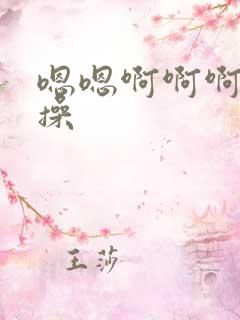 嗯嗯啊啊啊
操
王莎